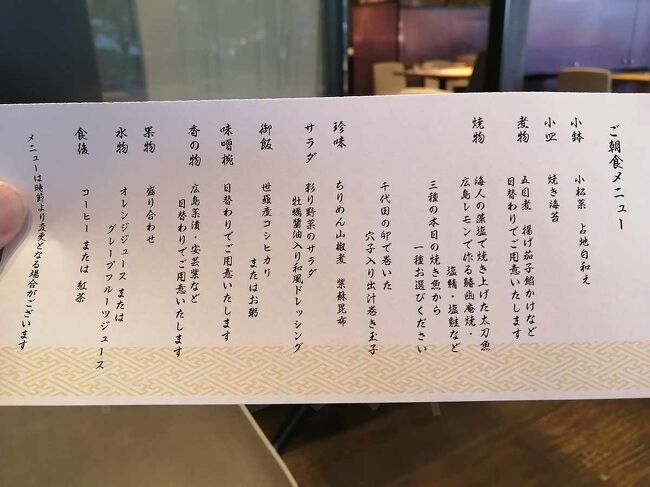 ご朝食メニュー
小鉢 小松菜 占地白和え
小皿 焼き海苔
煮物 五目煮 揚げ茄子餡かけなど
日替わりでご用意いたします
焼物 海人の藻塩で焼き上げた太刀魚
広島レモンで作る鰆幽庵焼・
塩鯖・塩鮭など
三種の本日の焼き魚から
一種お選びください
千代田の卵で巻いた
穴子入り出汁巻き玉子
珍味 ちりめん山椒煮 紫蘇昆布
サラダ 彩り野菜のサラダ
牡蠣醤油入り和風ドレッシング
御飯 世羅産コシヒカリ
またはお粥
味噌椀 日替わりでご用意いたします
香の物 広島菜漬・安芸紫など
日替わりでご用意いたします
果物 盛り合わせ
水物 オレンジジュース または
グレープフルーツジュース
食後 コーヒー または 紅茶
メニューは時節より変更となる場合がございます